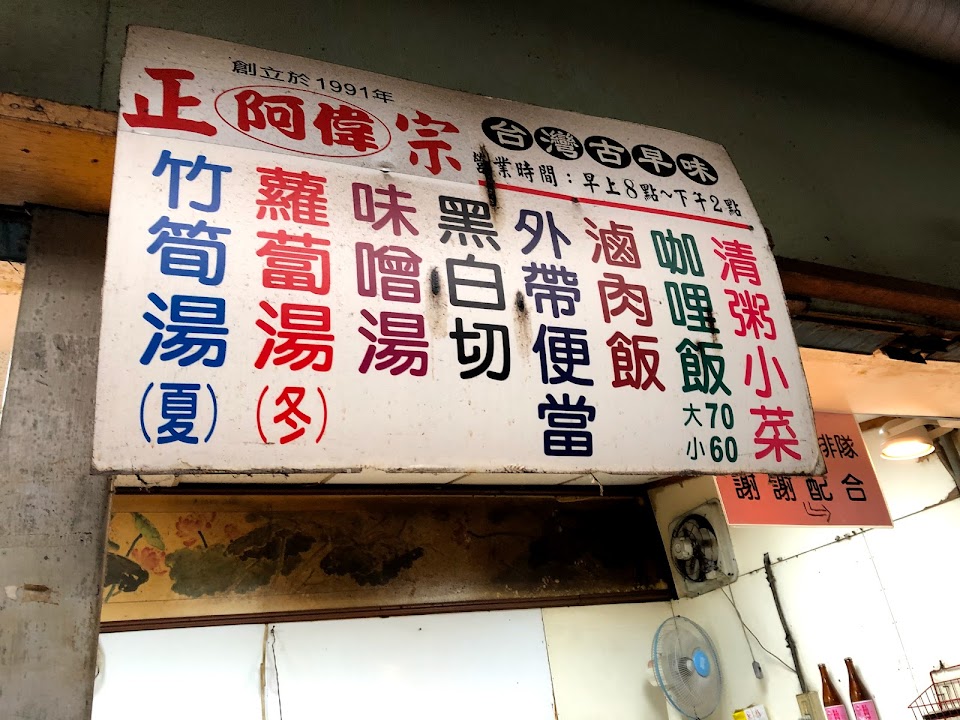 創立於1991年
正 阿偉 宗 台灣古早味
營業時間：早上8點~下午2點
清粥小菜
咖哩飯
大70
小60
滷肉飯
外帶便當
黑白切
味噌湯
蘿蔔湯(冬)
竹筍湯(夏)
排隊
謝謝配合